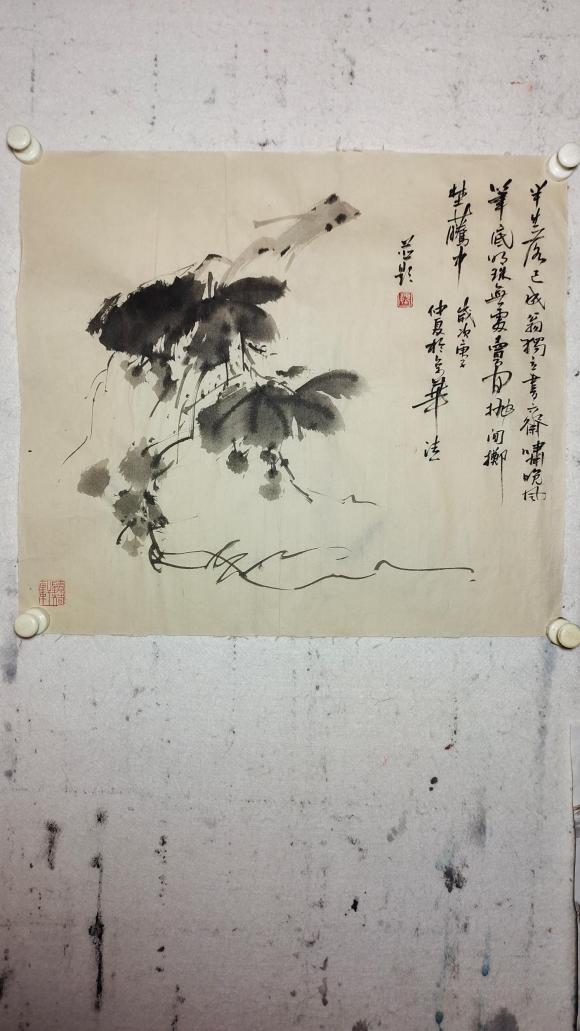 半生落已成翁獨立書齋嘯晚风
筆底明珠無處賣闲抛闲擲
埜藤中
歲次庚子
仲夏於京華
題